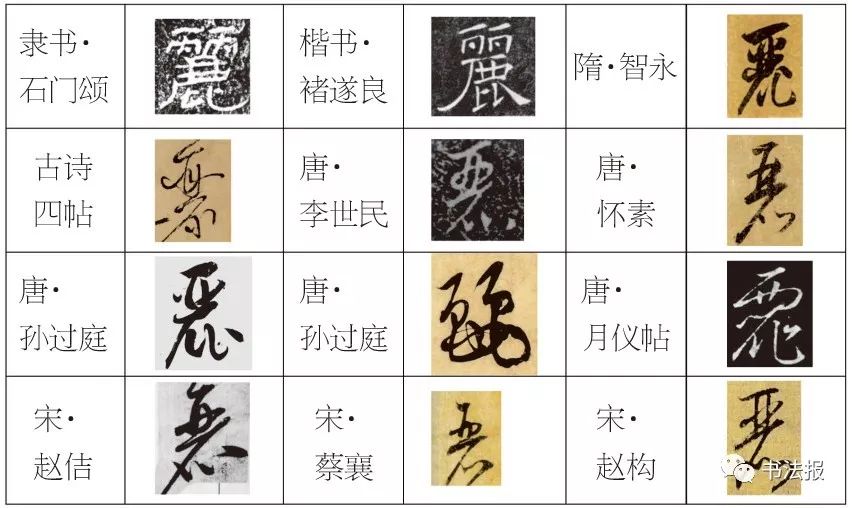 隶书·
石门颂
麗
楷书·
褚遂良
麗
隋·智永
麗
古诗
四帖
唐·
李世民
唐·
怀素
唐·
孙过庭
麗
唐·
孙过庭
唐·
月仪帖
麗
宋·
赵佶
宋·
蔡襄
宋·
赵构
书法报